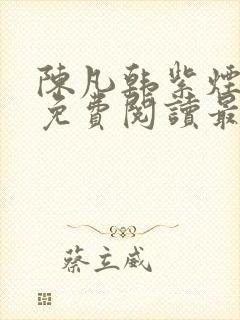 陳凡韓紫煙
免費閱讀最
蔡立威